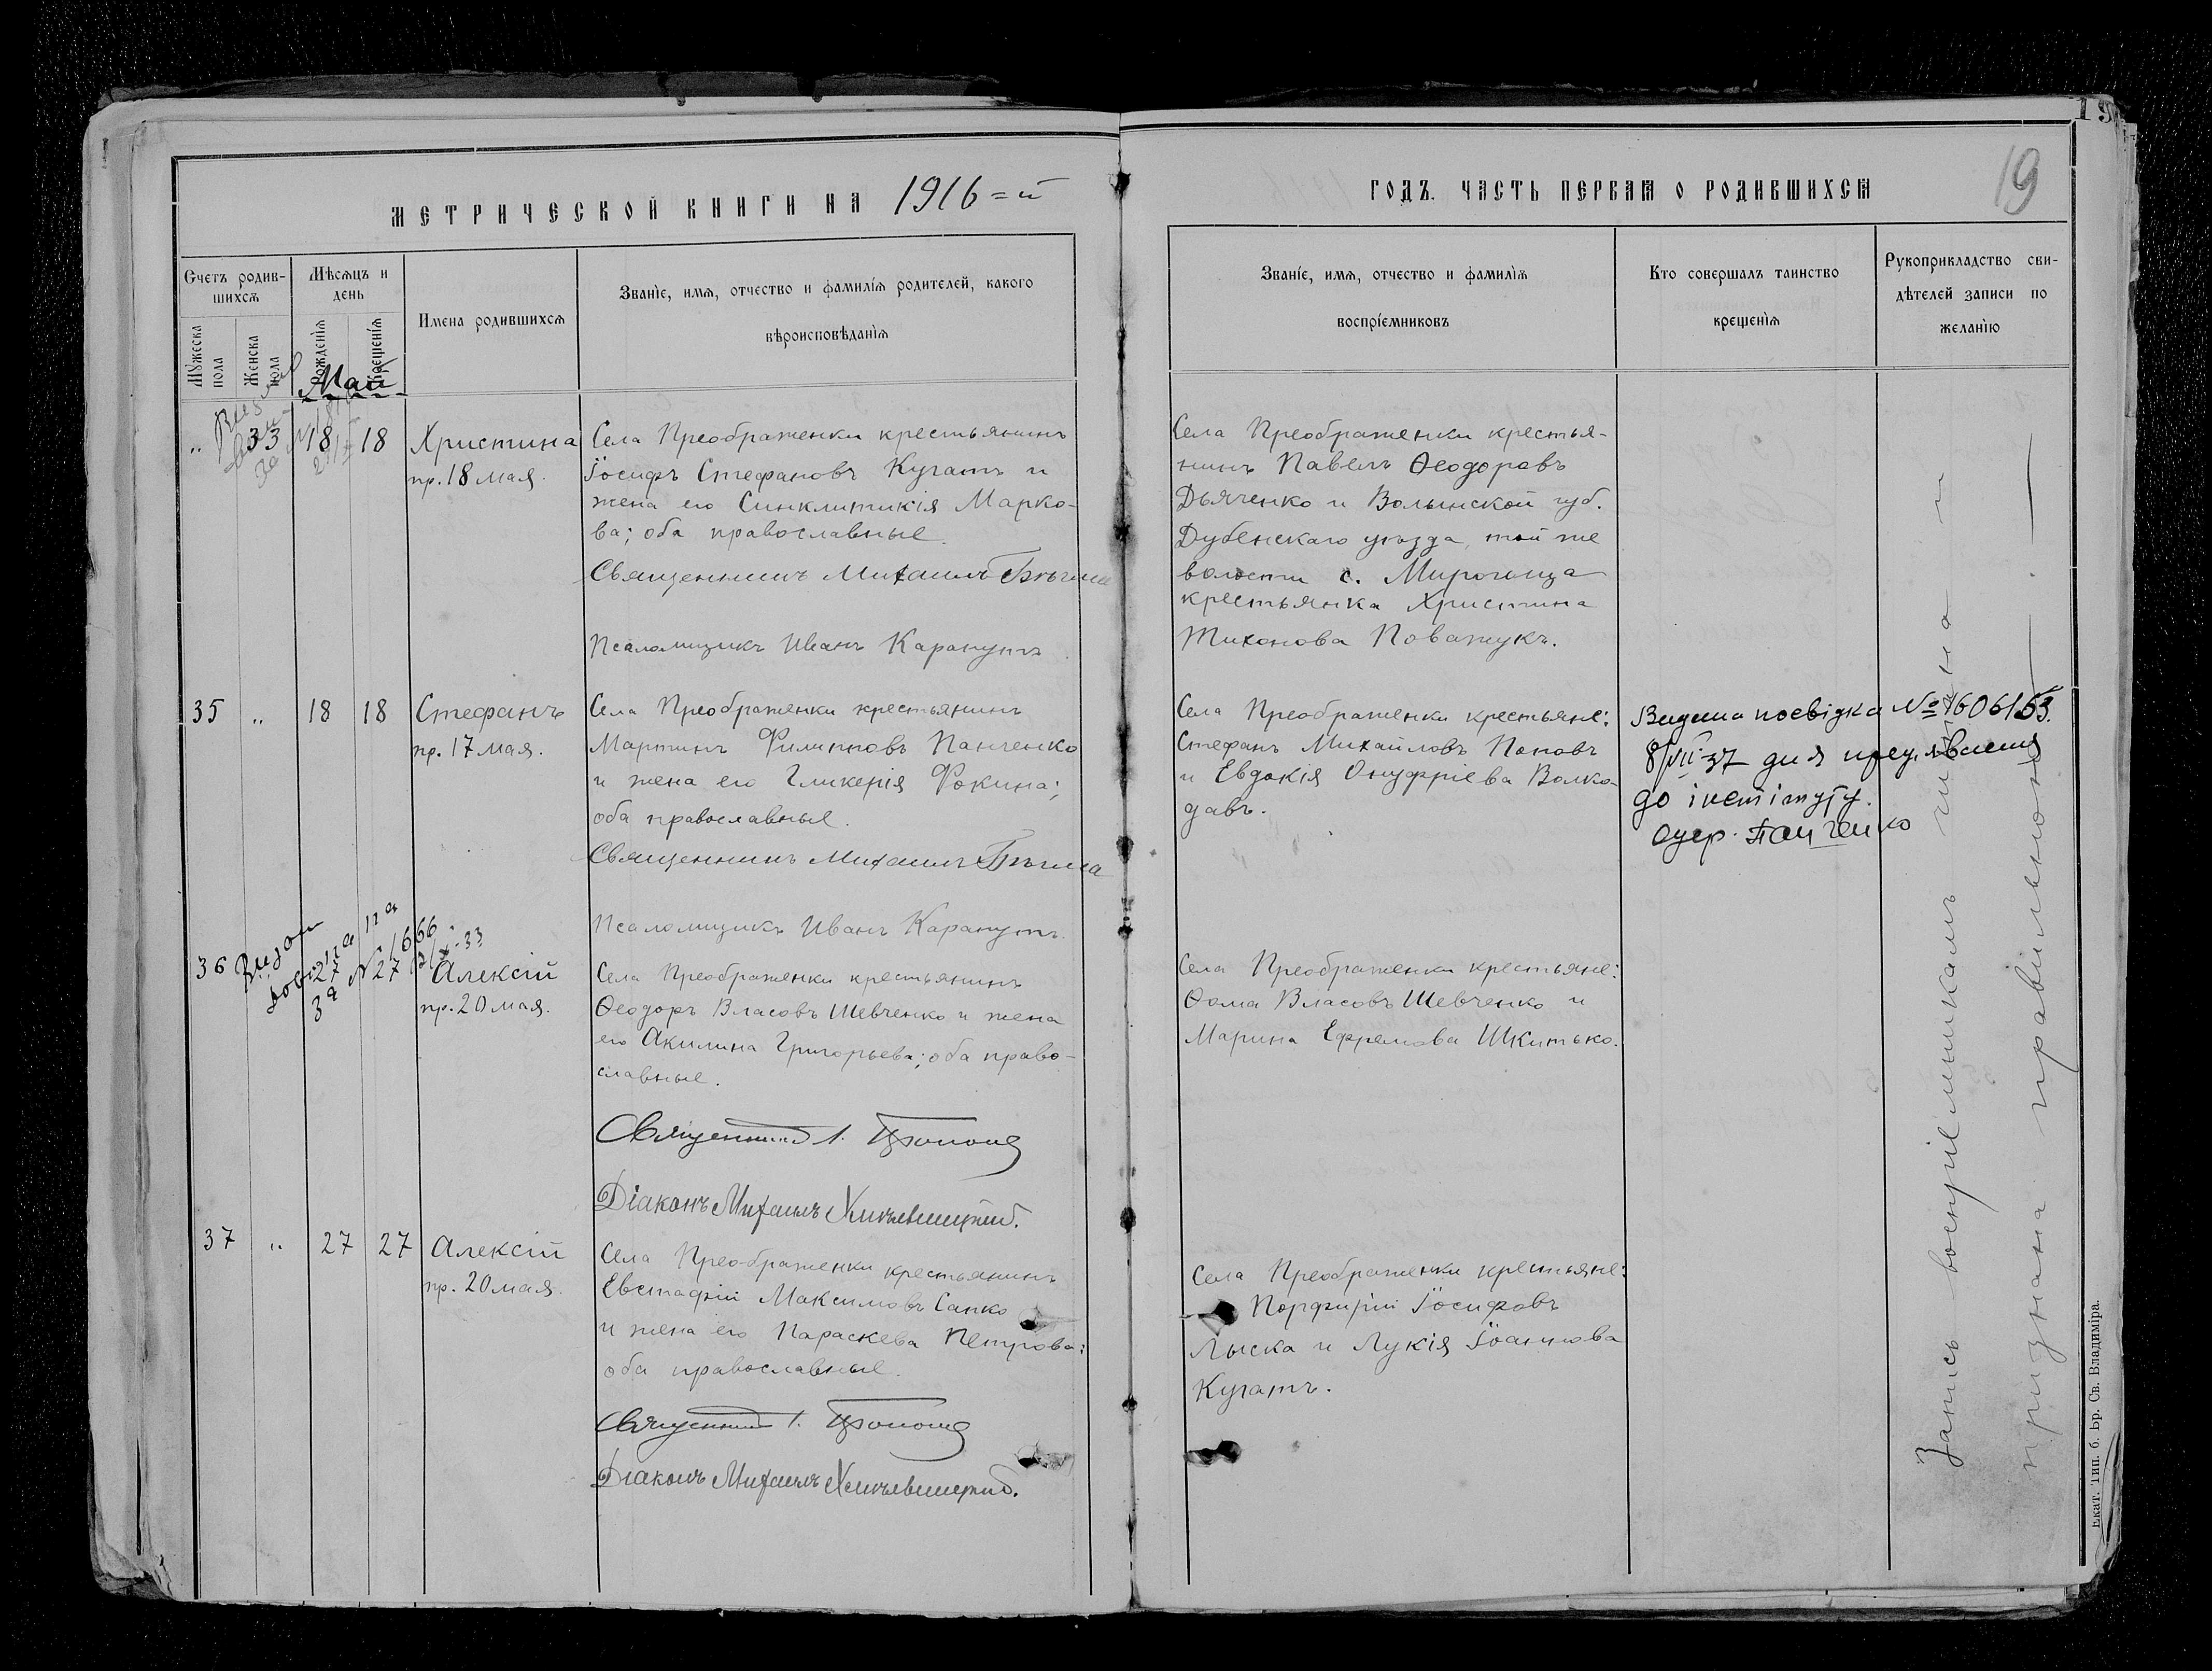 19
19
МЕТРИЧЕСКОЙ КНИГИ НА 1916=й
ГОДЪ. ЧАСТЬ ПЕРВАЯ О РОДИВШИХСЯ
Счетъ родив-
шихся
Мужеска пола
Женска пола
Мѣсяцъ и
день
Рожденія
Крещенія
Имена родившихся
Званіе, имя, отчество и фамилія родителей, какого
вѣроисповѣданія
Званіе, имя, отчество и фамилія
воспріемниковъ
Кто совершалъ таинство
крещенія
Рукоприкладство сви-
дѣтелей записи по
желанію
Май
„ 33 18 18 Христина
пр. 18 мая.
Села Преображенки крестьянинъ
Іосифъ Стефановъ Кугатъ и
жена его Синклитикія Марко-
ва; оба православные.
Священникъ Михаилъ
Псаломщикъ Иванъ Карапутъ
Села Преображенки крестья-
нинъ Павелъ Ѳеодоровъ
Дьяченко и Волынской губ.
Дубенскаго уѣзда, той же
волости с. Мирогоща
крестьянка Христина
Тихонова Поважукъ.
35 „ 18 18 Стефанъ
пр. 17 мая.
Села Преображенки крестьянинъ
Мартинъ Филипповъ Панченко
и жена его Гликерія Фокина;
оба православные.
Священникъ Михаилъ
Псаломщикъ Иванъ Карапутъ
Села Преображенки крестьяне:
Стефанъ Михайловъ Поповъ
и Евдокія Онуфріева Волко-
давъ.
Видана посвідка № 1606153.
8/VII-37 для предявлення
до інстітуту.
одер. Панченко
36 27 27 Алексій
пр. 20 мая.
Видан
довідка на
за № 1666
Села Преображенки крестьянинъ
Ѳеодоръ Власовъ Шевченко и жена
его Акилина Григорьева; оба право-
славные.
Священникъ І.
Діаконъ Михаилъ
Села Преображенки крестьяне:
Ѳома Власовъ Шевченко и
Марина Ефремова Шкитько.
37 „ 27 27 Алексій
пр. 20 мая.
Села Преображенки крестьянинъ
Евстафій Максимовъ Сапко
и жена его Параскева Петрова;
оба православные.
Священникъ І.
Діаконъ Михаилъ
Села Преображенки крестьяне:
Порфирій Іосифовъ
Лыска и Лукія Іоаннова
Кугатъ.
Запись воспріемникамъ читана и
признана правильною.
Екат. Тип. б. Бр. Св. Владиміра.